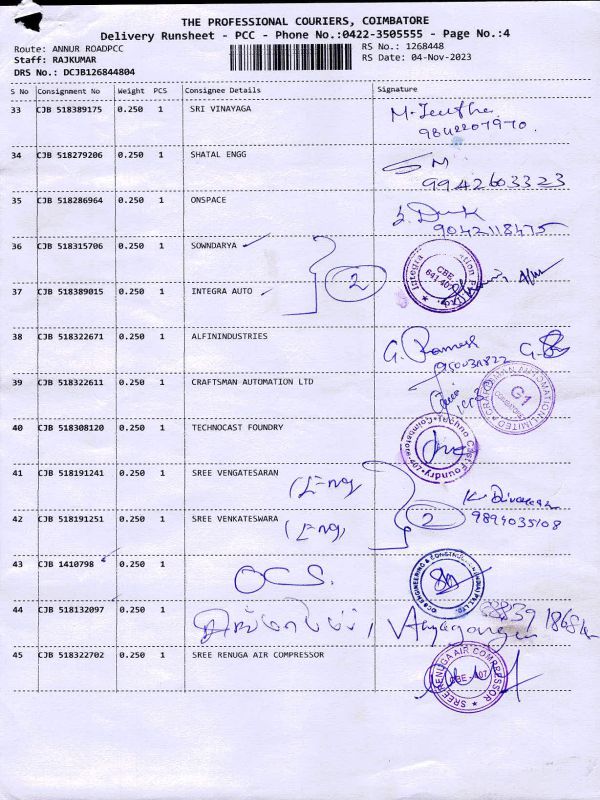 THE PROFESSIONAL COURIERS, COIMBATORE
Delivery Runsheet - PCC - Phone No.:0422-3505555 - Page No.:4
Route: ANNUR ROADPCC
RS No.: 1268448
Staff: RAJKUMAR
RS Date: 04-Nov-2023
DRS No.: DCJB126844804
S No Consignment No Weight PCS Consignee Details Signature
33 CJB 518389175 0.250 1 SRI VINAYAGA
9842207970.
34 CJB 518279206 0.250 1 SHATAL ENGG
SM
9942603323
35 CJB 518286964 0.250 1 ONSPACE
9042118475
36 CJB 518315706 0.250 1 SOWNDARYA
2
CBE
641 407
37 CJB 518389015 0.250 1 INTEGRA AUTO
38 CJB 518322671 0.250 1 ALFININDUSTRIES
G. Ramesh
39 CJB 518322611 0.250 1 CRAFTSMAN AUTOMATION LTD
CRAFTSMAN AUTOMATION LIMITED
G1
COIMBATORE
40 CJB 518308120 0.250 1 TECHNOCAST FOUNDRY
Techno Cast Foundry
41 CJB 518191241 0.250 1 SREE VENGATESARAN
(Eng
42 CJB 518191251 0.250 1 SREE VENKATESWARA
(Eng)
2
9894035108
43 CJB 1410798 0.250 1
OCS.
OCS ENGINEERING & CONSTRUCTION (INDIA) PVT LTD.
44 CJB 518132097 0.250 1
45 CJB 518322702 0.250 1 SREE RENUGA AIR COMPRESSOR
SREE RENUGA AIR COMPRESSOR
CBE - 407